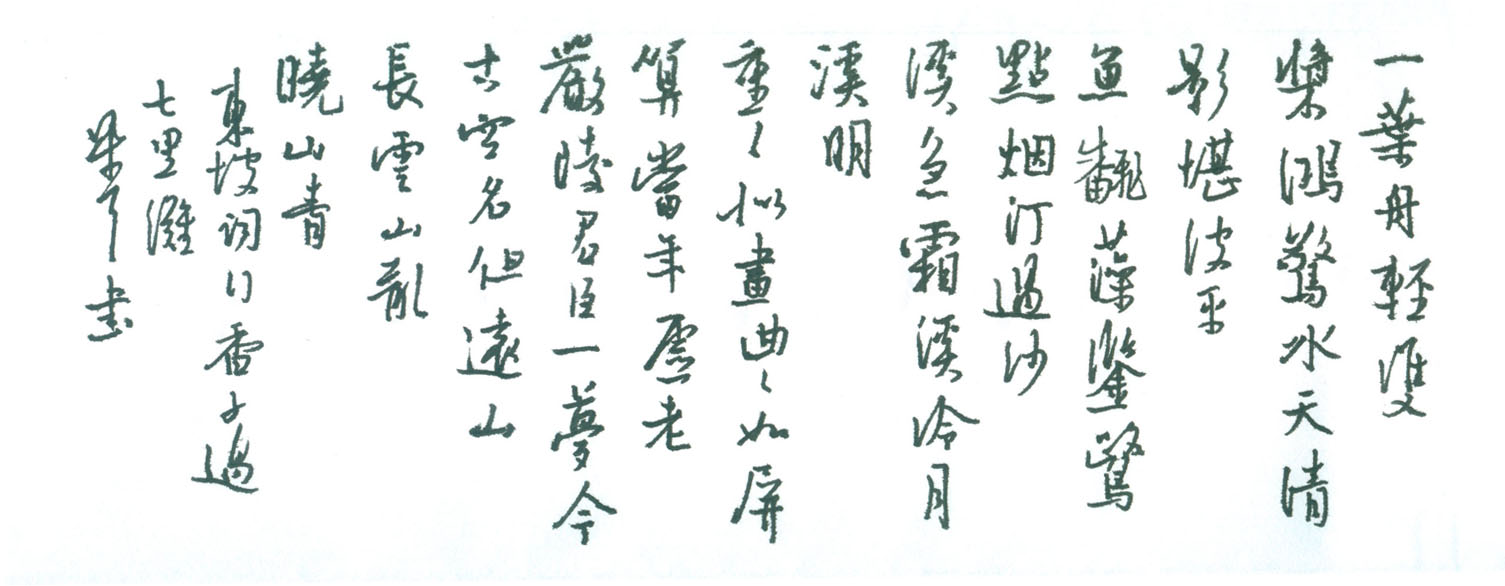 一葉舟輕雙
槳鴻驚水天清
影湛波平
魚飜藻鑒鷺
點烟汀過沙
溪急霜溪冷月
溪明
重々似畫曲々如屏
算當年虛老
嚴陵君臣一夢今
古空名但遠山
長雲山亂
曉山青
東坡詞行香子過
七里灘
書